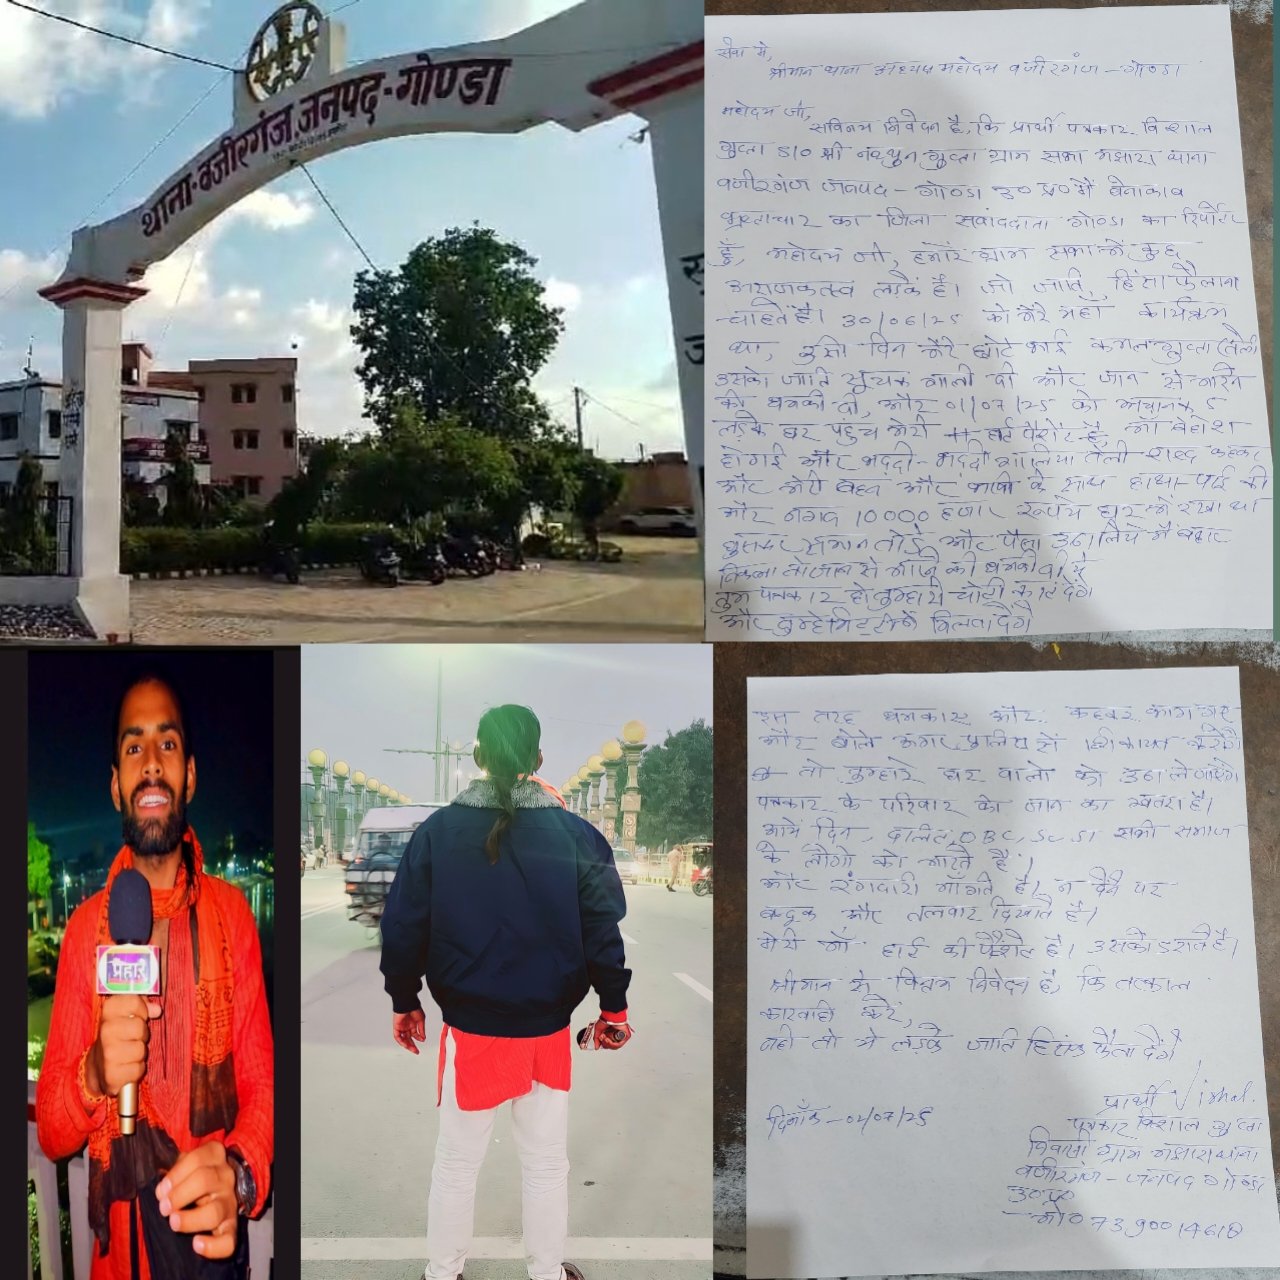 थाना-वजीरगंज,जनपद-गोण्डा
सेवा में,
श्रीमान थाना अध्यक्ष महोदय वजीरगंज - गोण्डा
महोदय जी,
सविनय निवेदन है, कि प्रार्थी पत्रकार विशाल
गुप्ता S/O श्री गुप्ता ग्राम सभा थाना
वजीरगंज जनपद - गोण्डा उ० प्र० में बेनाकाब
भ्रष्टाचार का जिला संवाददाता गोण्डा का रिपोर्टर
हूँ, महोदय जी, हमारे ग्राम सभा में कुछ
अराजकतत्व लड़के है। जो जाति, हिंसा फैलाना
चाहते है। 30/06/25 को मेरे यहाँ कार्यक्रम
था, उसी दिन मेरे छोटे भाई कमल गुप्ता (तेली
उसको जाति सूचक गाली दी और जान से मारने
की धमकी दी, और 01/07/25 को अचानक 5
लड़के घर पहुच मेरी माँ हार्ट पेशेंट है, माँ बेहोश
होगई और भददी-भददी गालिया तेली शब्द कहकर
और मेरी बहन और भाभी के साथ हाथा-पाई की
और नगद 10000 हजार रूपये घर में रखा था
घुसकर सामान तोड़े और पैसा उठा लिये मैं बाहर
निकला तो जान से मारने की धमकी दी ये
तुम पत्रकार हो तुम्हारी चोटी काट देंगे
और तुम्हे मिट्टी में मिलवा देंगे
इस तरह धमकाए और कहकर भाग गए
और बोले अगर पुलिस से शिकायत करोगे
तो तुम्हारे घर वालो को उठा ले जायेंगे
पत्रकार के परिवार को जान का खतरा है।
आये दिन, दलित, OBC, SC ST सभी समाज
के लोगो को मारते है।
और रंगदारी माँगते है। न देने पर
बन्दूक और तलवार दिखाते है।
मेरी माँ हार्ट की पेशेंट है। उसको डराते है।
श्रीमान से विनम्र निवेदन है, कि तत्काल
कारवाही करें,
नही तो ये लड़के जाति हिंसक फैला देंगे
प्रार्थी Vishal.
दिनाँक - 02/07/25
पत्रकार विशाल गुप्ता
निवासी ग्राम थाना
वजीरगंज - जनपद गोण्डा
उ०प्र०
मो० 7390014618
प्रहार